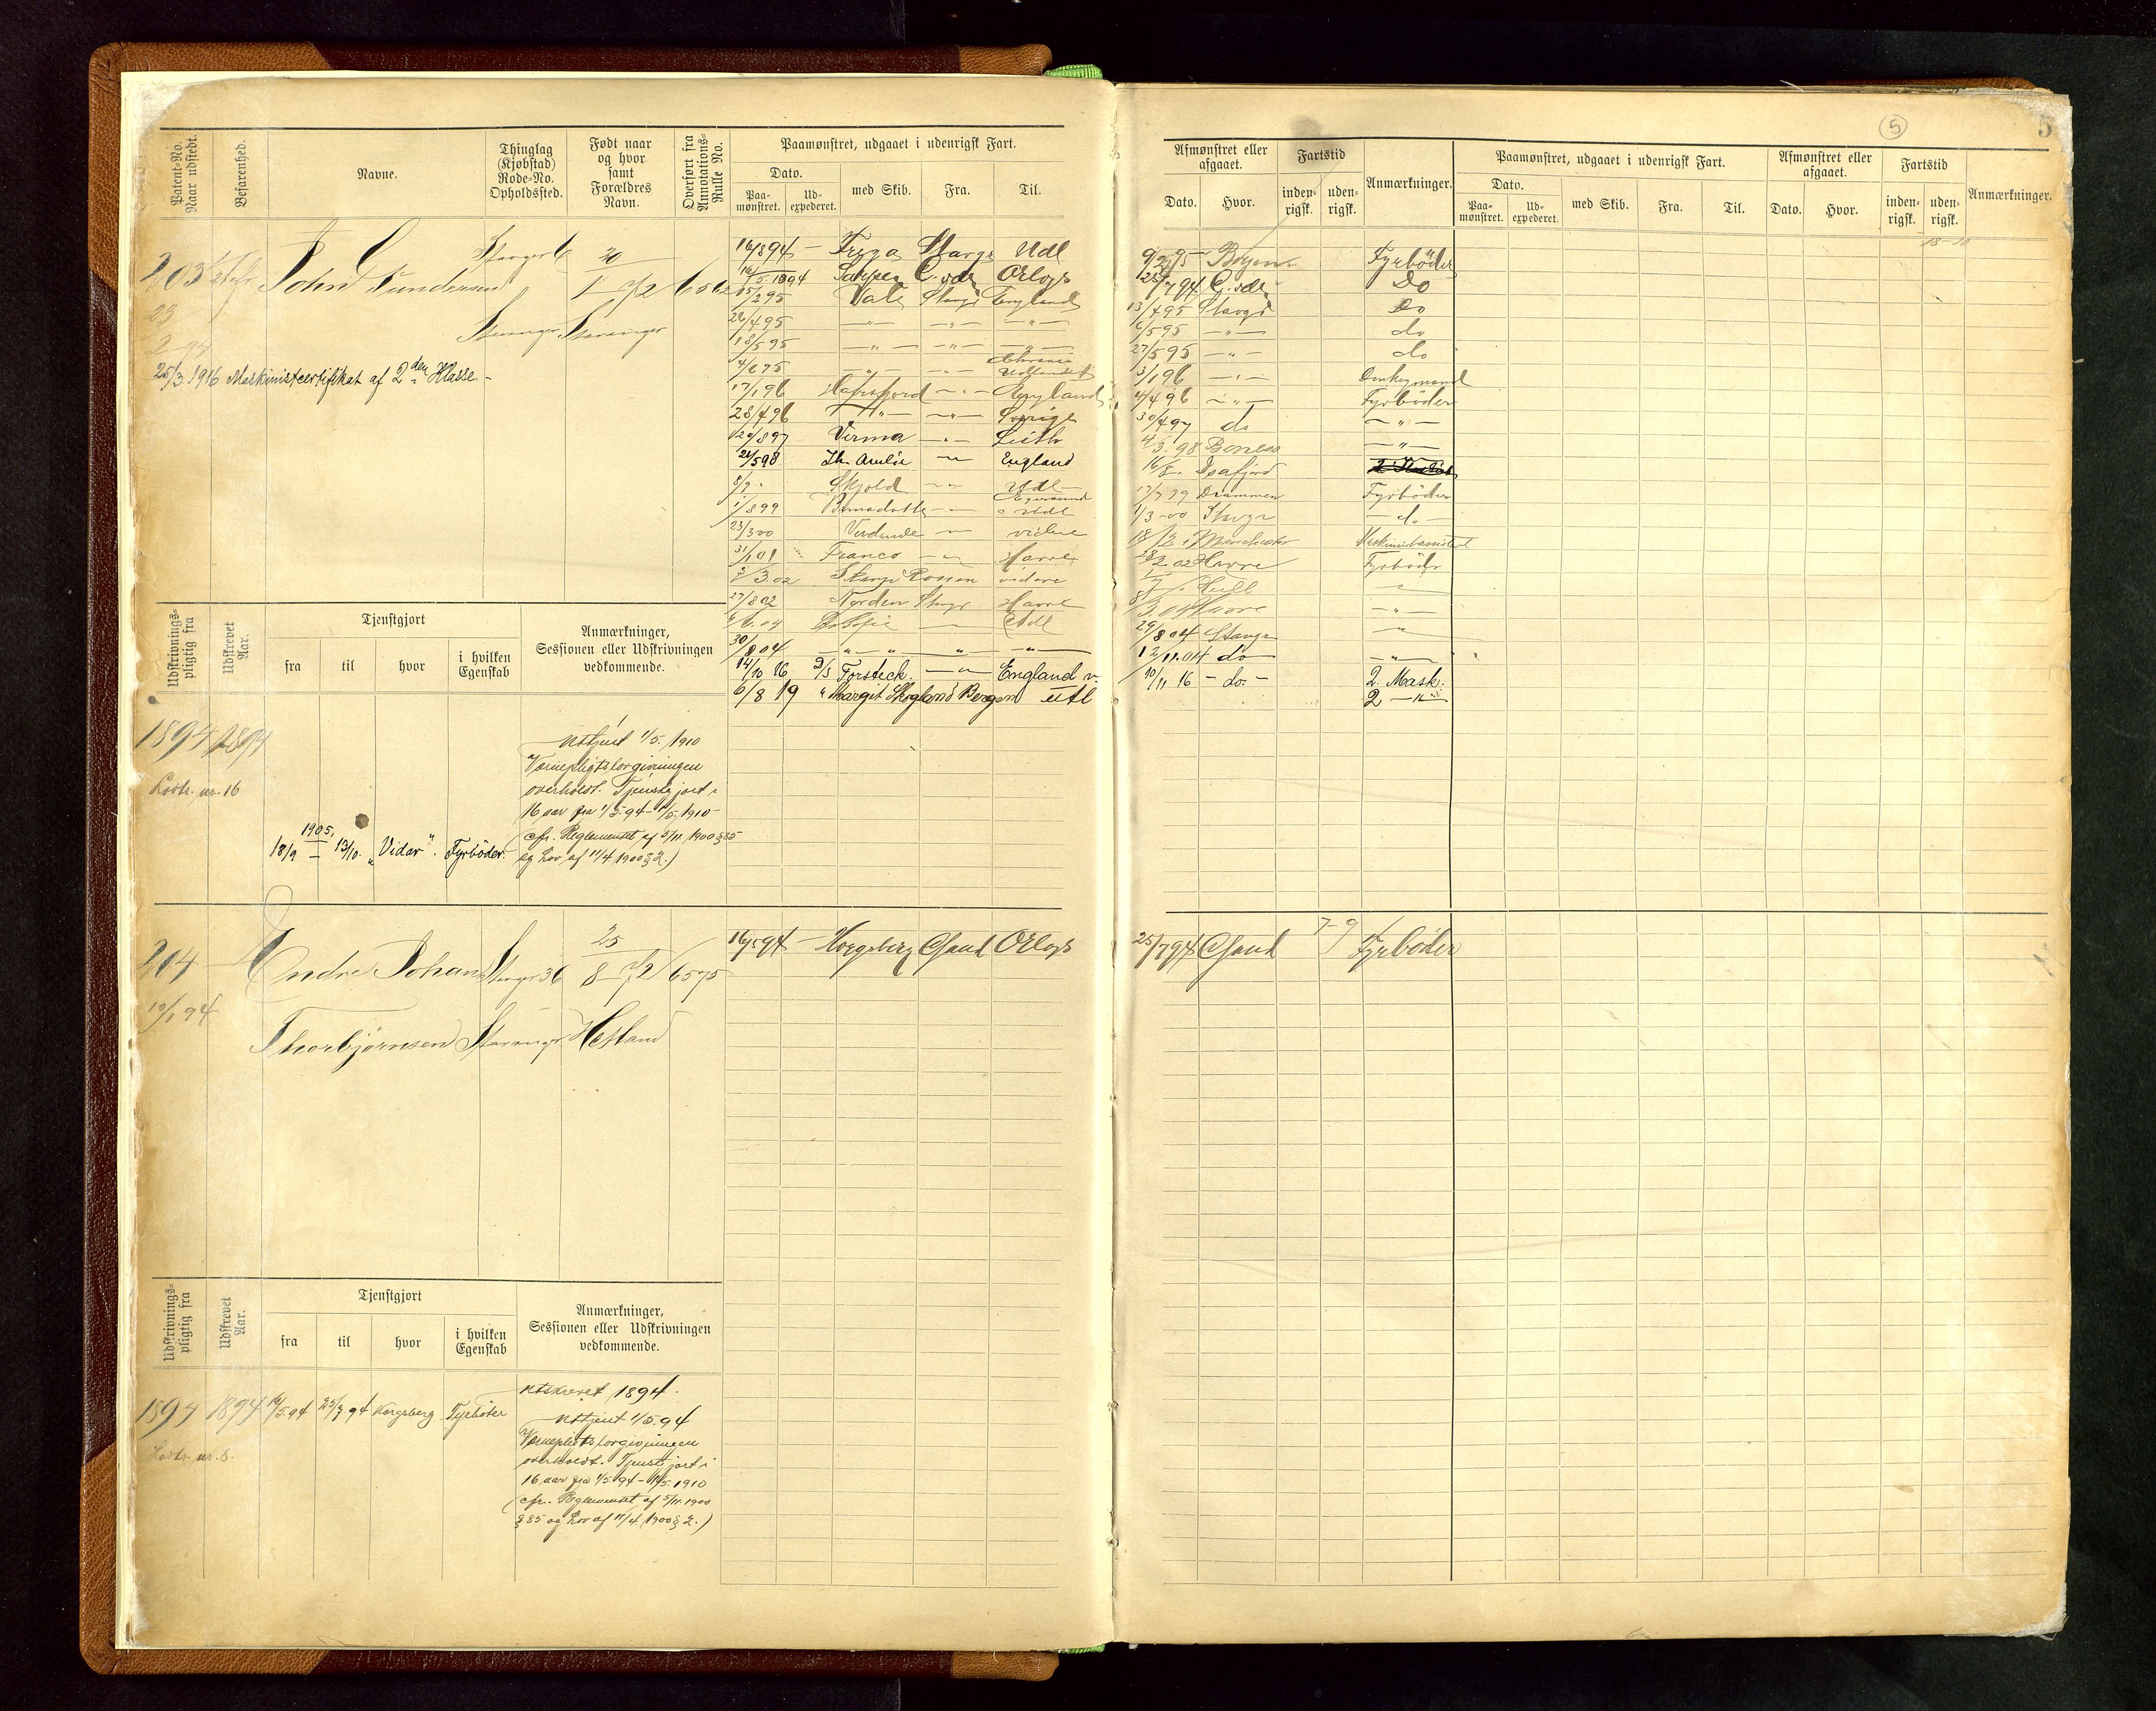 Patent-No.
Naar udstedt.
Befarenhed.
Navne.
Thinglag
(Kjøbstad)
Rode-No.
Opholdssted.
Født naar
og hvor
samt
Forældres
Navn.
Overført fra
Annotations-
Rulle No.
Paamønstret, udgaaet i udenrigsk Fart.
Dato.
Paa-
mønstret.
Ud-
expederet.
med Skib.
Fra.
Til.
203
John Gundersen
Stavanger Stavanger
25/3 1916 Maskinistcertifikat af 2den Klasse -
16/8 94 — Freya Stavgr Udl
16/5 1894
Orlogs
15/2 95 Vale Stavgr England
26/4 95 —"— —"— —"—
18/5 95 —"— —"— —"—
4/6 95 —"— —"— Udlandet
17/1 96 Hafrsfjord —"— England
28/4 96 —"— —"— Sverige
20/8 97 Verma —"— Leith
21/5 98 England
Skjold —"— Udl
1/8 99 Bernadotte —"— Udl
23/3 00 videre
31/1 01 Franco —"— Havre
3/3.02 videre
27/8 02 Norden Stavgr Havre
30/8 04 —"— " " —"—
14/10 16 Forsteck. —"— England
6/8 19 " Margit Skogland Bergen utl
Udskrivnings-
pligtig fra
Udskrevet
Aar.
Tjenstgjort
fra
til
hvor
i hvilken
Egenskab
Anmærkninger,
Sessionen eller Udskrivningen
vedkommende.
1894 1894
Lodtr. nr. 16
1905,
18/9 — 13/10. „Vidar". Fyrbøder.
Utskreven 1/5. 1910
Værnepligtslovgivningen
overholdt. Tjenstgjort i
16 aar fra 1/5.94–1/5.1910–
(cfr. Reglementet af 5/11.1900 § 85
og Lov af 11/4.1900 § 2.)
204
10/1 94
Endre Johan Stavgr 36 6575
25
8
Thorbjørnsen Stavanger Hetland
16/5 94 — Kongsberg Chsand Orlogs
Udskrivnings-
pligtig fra
Udskrevet
Aar.
Tjenstgjort
fra
til
hvor
i hvilken
Egenskab
Anmærkninger,
Sessionen eller Udskrivningen
vedkommende.
1894 1894 16/5.94 25/7 94 Kongsberg Fyrbøder
Lodtr. nr. 8.
Utskrevet 1894.
Uttjent 1/5.94
Værnepligtslovgivningen
overholdt. Tjenstgjort i
16 aar fra 1/5.94–1/5.1910
(cfr. Reglementet af 5/11.1900
§ 85 og Lov af 11/4.1900 § 2.)
5
5
Afmønstret eller
afgaaet.
Dato.
Hvor.
Fartstid
inden-
rigsk.
uden-
rigsk.
Anmærkninger.
Paamønstret, udgaaet i udenrigsk Fart.
Dato.
Paa-
mønstret.
Ud-
expederet.
med Skib.
Fra.
Til.
Afmønstret eller
afgaaet.
Dato.
Hvor.
Fartstid
inden-
rigsk.
uden-
rigsk.
Anmærkninger.
9/2 95 Bergen Fyrbøder
25/7 94 Do
13/4 95 Stavgr Do
6/5 95 —"— do
27/5 95 —"— do
3/1 96 —"— Donkeymand
4/4 96 —"— Fyrbøder
30/4 97 do —"—
4/3. 98 Boness —"—
16/8 Isafjord
Drammen Fyrbøder
1/3 00 Stavgr do
Manchester Maskinistassistent
28/2 02 Havre Fyrbøder
Hull "
8/3.04 Havre —"—
29/8 04 Stavgr "
12/11.04 do —"—
10/11 16 - do. - 2. Mask.
2 —"—
25/7 94 Chsand 7-9 Fyrbøder